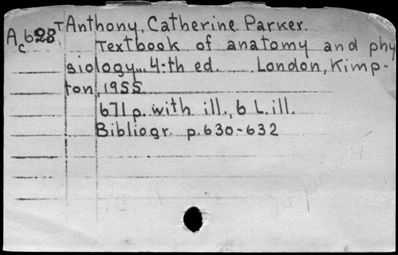 Ac628,T Anthony, Catherine Parker.
Textbook of anatomy and phy
siology... 4-th ed. London, Kimp-
ton, 1955.
671 p. with ill., 6 L. ill.
Bibliogr. p. 630-632